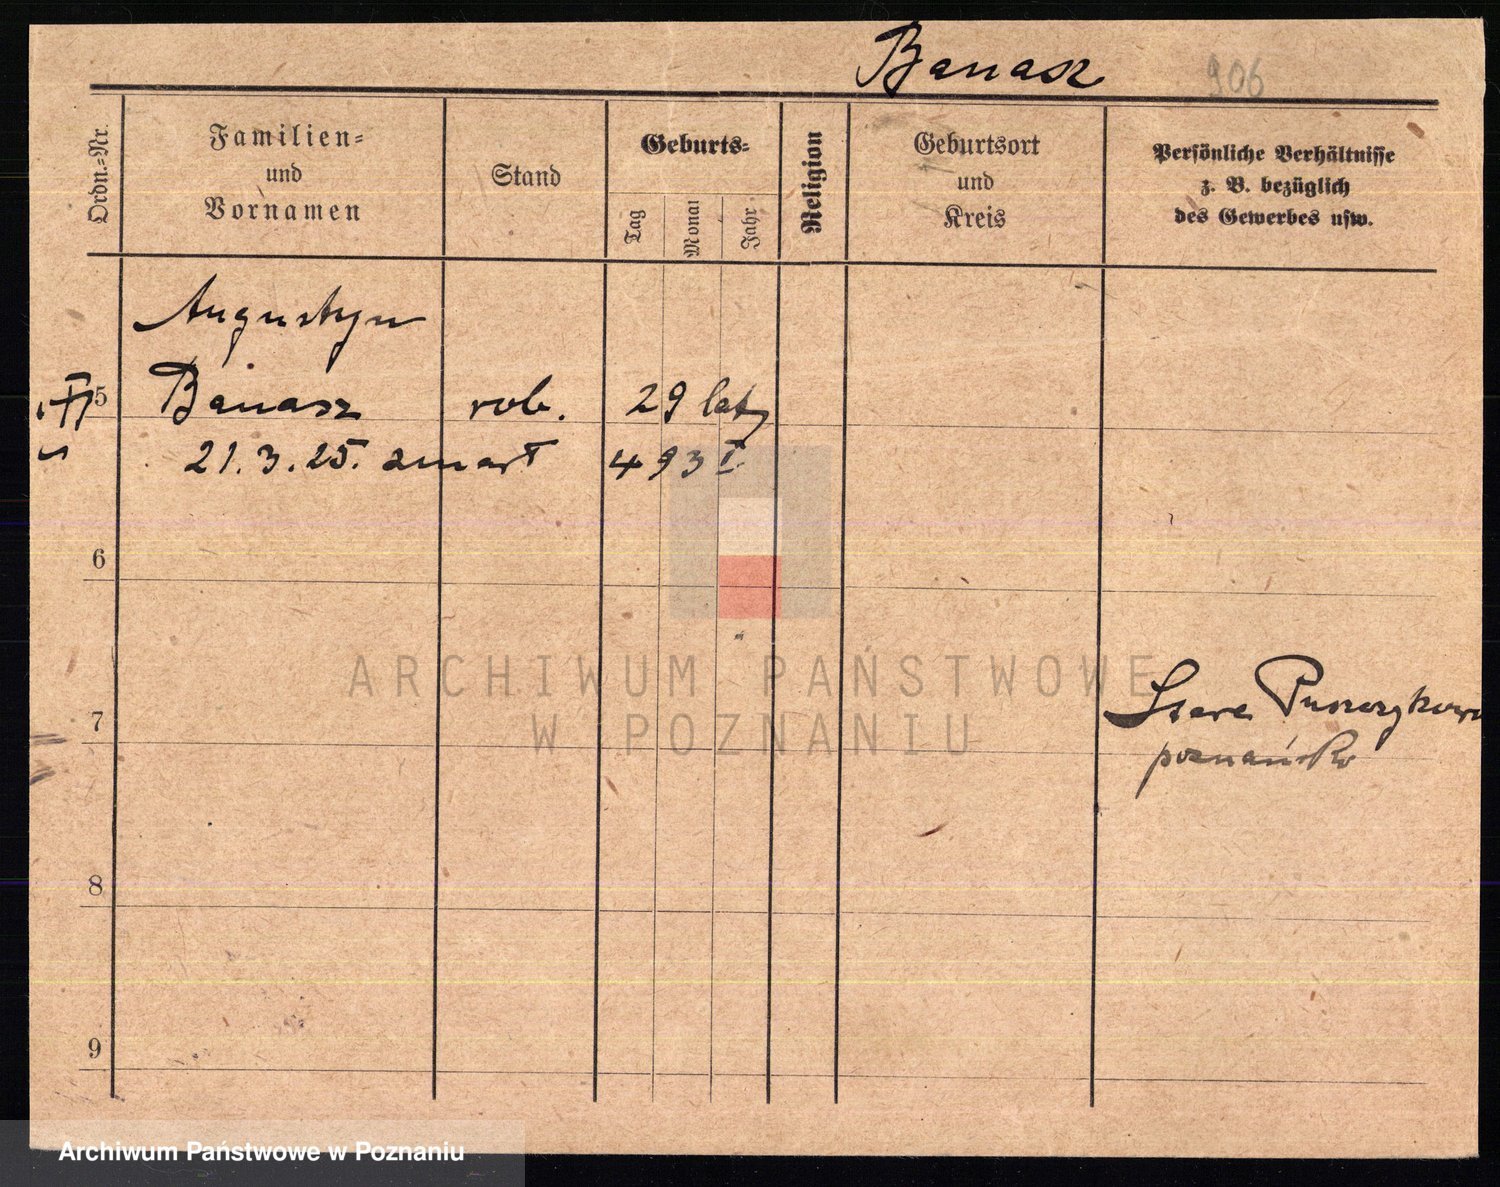 Banasz 906
Ordn.=Nr.
Familien=
und
Vornamen
Stand
Geburts=
Tag
Monat
Jahr
Religion
Geburtsort
und
Kreis
Persönliche Verhältnisse
z. B. bezüglich
des Gewerbes usw.
Augustyn
5 Banasz rob. 29 laty
21.3.25. zmarł 493 I
6
7
poznańsko
8
9
ARCHIWUM PAŃSTWOWE
W POZNANIU
Archiwum Państwowe w Poznaniu